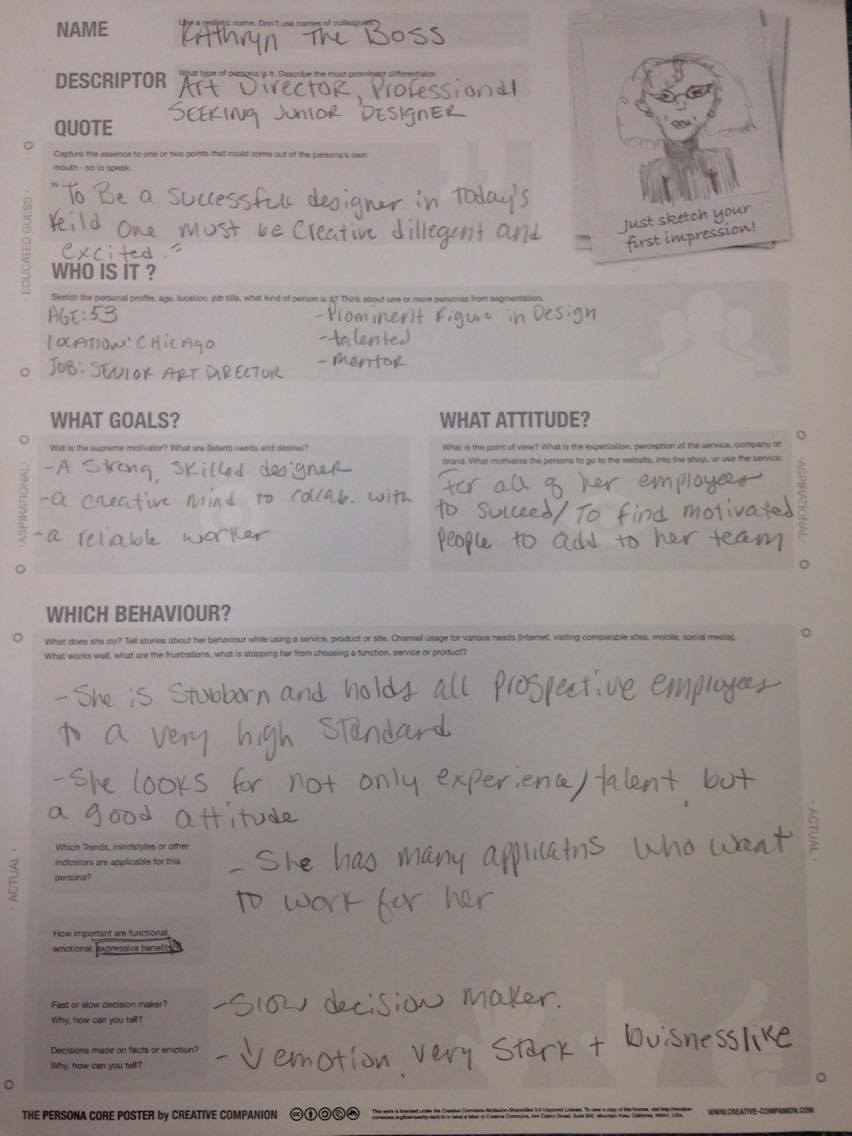 NAME
Use a realistic name. Don't use names of colleagues.
Kathryn The Boss
DESCRIPTOR
What type of persona is it. Describe the most prominent differentiator.
Art Director, Professional
SEEKING JUNIOR DESIGNER
QUOTE
Capture the essence to one or two points that could come out of the persona's own
mouth - so to speak.
"To Be a successfull designer in Today's
feild one must be creative dillegent and
excited."
Just sketch your
first impression!
· EDUCATED GUESS ·
WHO IS IT ?
Sketch the personal profile, age, location, job title, what kind of person is it? Think about one or more personas from segmentation.
AGE: 53
LOCATION: CHICAGO
JOB: SENIOR ART DIRECTOR
- Prominent Figure in Design
- talented
- mentor
WHAT GOALS?
Wat is the supreme motivator? What are (latent) needs and desires?
- A Strong, skilled designer
- a creative mind to collab. with
- a reliable worker
· ASPIRATIONAL ·
WHAT ATTITUDE?
What is the point of view? What is the expectation, perception of the service, company or
brand. What motivates the persona to go to the website, into the shop, or use the service.
For all of her employees
to succeed/ To find motivated
people to add to her team
· ASPIRATIONAL ·
WHICH BEHAVIOUR?
What does she do? Tell stories about her behaviour while using a service, product or site. Channel usage for various needs (internet, visiting comparable sites, mobile, social media).
What works well, what are the frustrations, what is stopping her from choosing a function, service or product?
- She is Stubborn and holds all prospective employees
to a very high standard
- She looks for not only experience/talent, but
a good attitude
Which Trends, mindstyles or other
indicators are applicable for this
persona?
- She has many applicatns who want
to work for her
How important are functional,
emotional, expressive benefits?
Fast or slow decision maker?
Why, how can you tell?
- Slow decision maker.
Decisions made on facts or emotion?
Why, how can you tell?
- ↓ emotion, very stark + buisnesslike
· ACTUAL ·
· ACTUAL ·
THE PERSONA CORE POSTER by CREATIVE COMPANION
This work is licensed under the Creative Commons Attribution-ShareAlike 3.0 Unported License. To view a copy of this license, visit http://creative-
commons.org/licenses/by-sa/3.0/ or send a letter to Creative Commons, 444 Castro Street, Suite 900, Mountain View, California, 94041, USA.
WWW.CREATIVE-COMPANION.COM